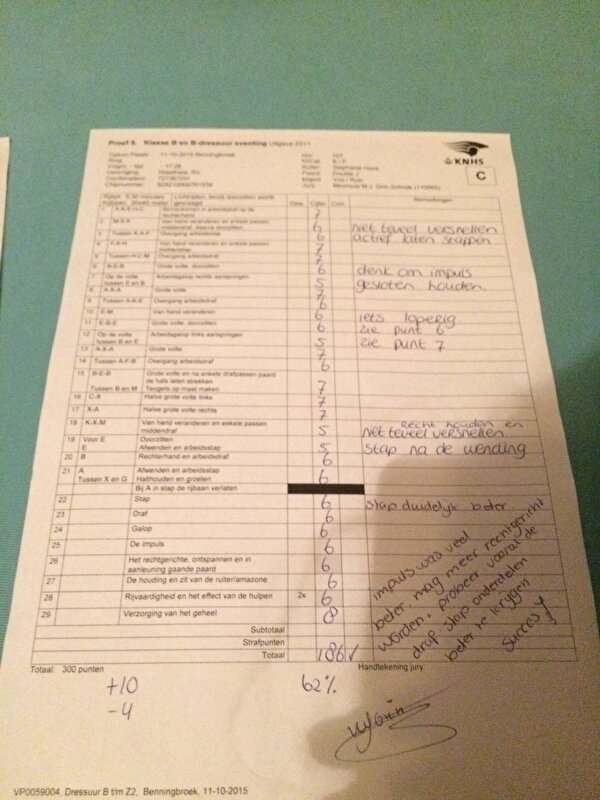 Proef 5. Klasse B en B-dressuur eventing Uitgave 2011
KNHS
C
Datum/Plaats : 11-10-2015 Benningbroek
Ring
Vereniging
Combinatienr.
Chipnummer:
Ruiter
Paard
Jury:
Rijtijd: 5.30 minuten
Cijfer Corr. Opmerkingen
1 A-K-E-H-C Binnenkomen in arbeidsdraf op de rechterhand 7
2 M-S-K Van hand veranderen en enkele passen middendraf, daarna doorzitten 6 niet teveel versnellen
3 Tussen K-A-F Overgang arbeidsstap 6 actief laten stappen
4 Van hand veranderen en enkele passen middenstap 7
5 Tussen H-C-M Overgang arbeidsdraf 7
6 B-E-B Grote volte, doorzitten 6 denk om impuls
7 Op de volte tussen E en B Arbeidsgalop rechts aanspringen 5 gesloten houden.
8 A-X-A Grote volte 7
9 Tussen A-K-E Overgang arbeidsdraf 6
10 E-M Van hand veranderen 6 iets loperig
11 E-B-E Grote volte, doorzitten 6 zie punt 6
12 Op de volte tussen B en E Arbeidsgalop links aanspringen 5 zie punt 7
13 A-X-A Grote volte 7
14 Tussen A-F-B Overgang arbeidsdraf 6
15 B-E-B Grote volte en na enkele drafpassen paard de hals laten strekken
Tussen B en M Teugels op maat maken 7
16 C-X Halve grote volte links 7
17 X-A Halve grote volte rechts 7
18 K-X-M Van hand veranderen en enkele passen middendraf 5 recht houden en niet teveel versnellen
19 Voor E Doorzitten
E Afwenden en arbeidsstap 5 stap na de wending
20 B Rechterhand en arbeidsdraf 6
21 A Afwenden en arbeidsstap
Tussen X en G Halthouden en groeten 6
Bij A in stap de rijbaan verlaten
22 Stap 6 stap duidelijk beter
23 Draf 6
24 Galop 6
25 De impuls 6
26 Het rechtgerichte, ontspannen en in aanleuning gaande paard 6
27 De houding en zit van de ruiter/amazone 6
28 Rijvaardigheid en het effect van de hulpen 2x 6
29 Verzorging van het geheel 8
impuls was veel
beter. mag meer rechtgericht
worden. probeer vooral de
draf stap onderdelen
beter te krijgen
succes!
Subtotaal
Strafpunten
Totaal 186
Totaal: 300 punten 62% Handtekening jury
+10
-4
VP0059004, Dressuur B t/m Z2, Benningbroek, 11-10-2015